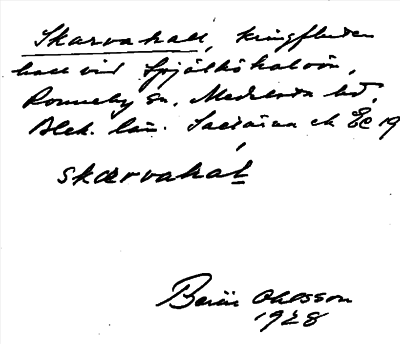 Skarvahall, kringfluten
hall vid Spjälköhalvön,
Ronneby sn, Medelsta hd,
Blek. län. Saltärna ek Ec 19
skarvahal
Börje Ohlsson
1928